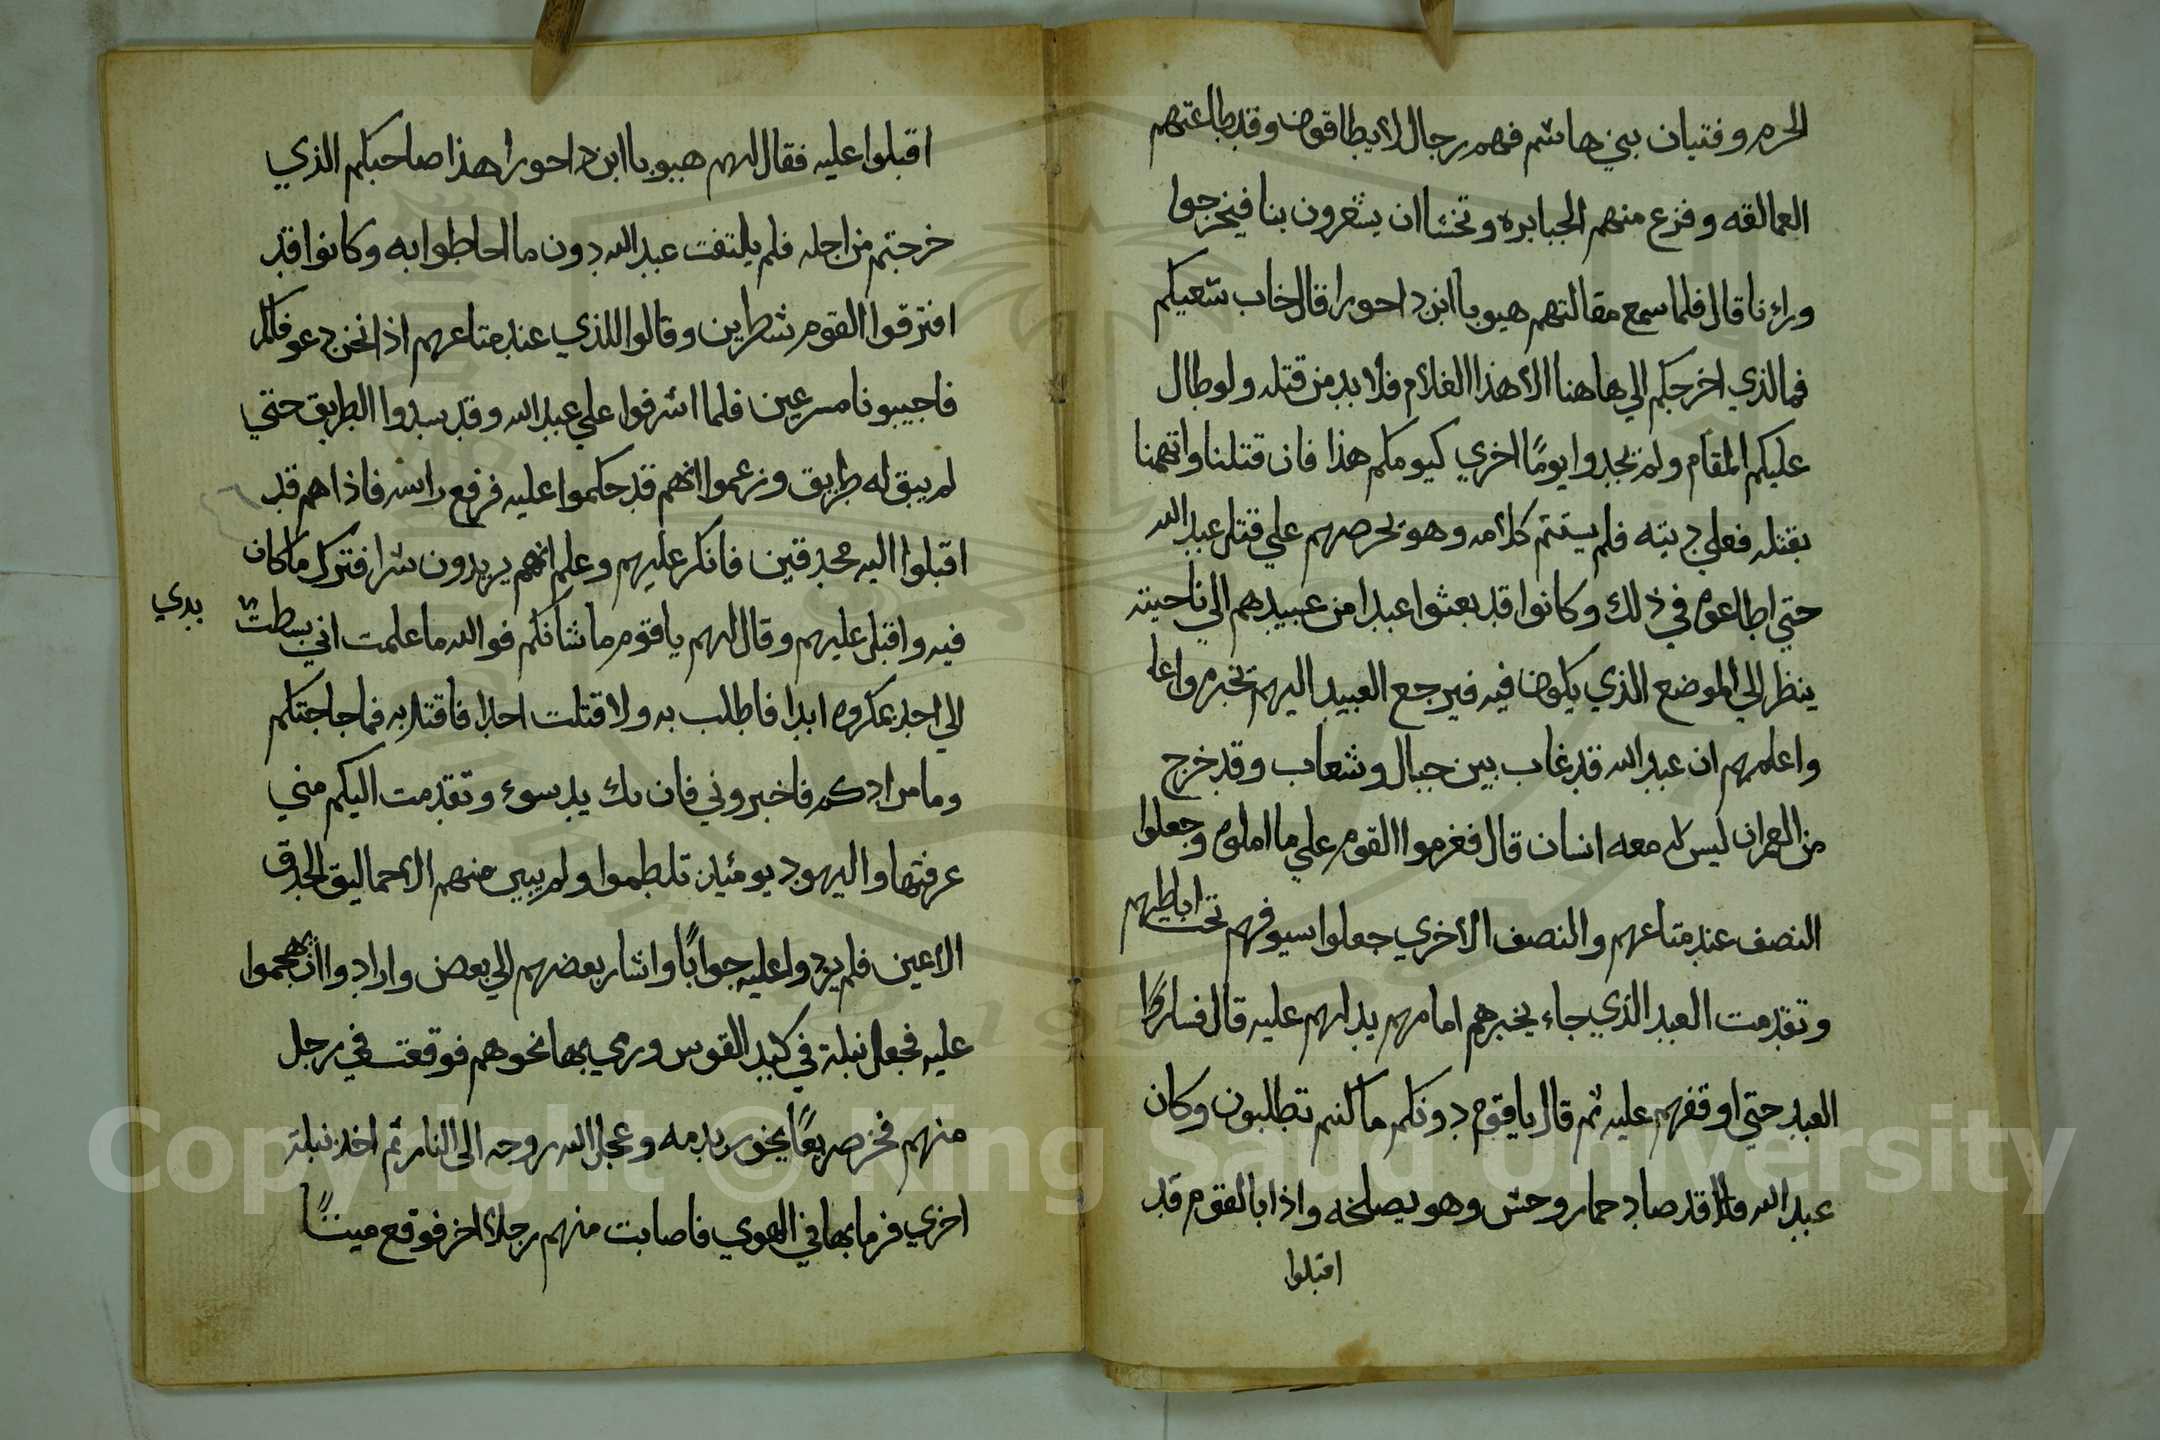 الحرم وفتيان بني هاشم فهم رجال لا يطاقون وقد طاعتهم
العمالقه وفزع منهم الجبابره وتخشا ان يشعرون بنا فيخرجوا
وراءنا قال فلما سمع مقالتهم هيوبا ابن داحورا قال خاب سعيكم
فما الذي اخرجكم الي هاهنا الا هذا الغلام فلا بد من قتله ولو طال
عليكم المقام ولم تجدوا يومًا اخري كيومكم هذا فان قتلنا واتهمنا
بقتله فعلي ديته فلم يستتم كلامه وهو يحرصهم علي قتل عبد الله
حتي اطاعوه في ذلك وكانوا قد بعثوا عبدا من عبيدهم الي ناحيته
ينظر الي الموضع الذي يكون فيه فيرجع العبيد اليهم تخبرهم
واعلمهم ان عبد الله قد غاب بين جبال وشعاب وقد خرج
من العمران ليس له معه انسان قال فغرموا القوم علي ما املوه وجعلوا
النصف عند متاعهم والنصف الاخري جعلوا سيوفهم تحت اباطيهم
وتقدمت العبد الذي جاء يخبرهم امامهم يدلهم عليه قال فسار
العبد حتي اوقفهم عليه ثم قال يا قوم دونكم ما كنتم تطلبون وكان
عبد الله قد صاد حمار وحش وهو يصلخه واذا بالقوم قد
اقبلوا
اقبلوا عليه فقال لهم هيوبا ابن داحورا هذا صاحبكم الذي
خرجتم من اجله فلم يلتفت عبد الله دون ما احاطوا به وكانوا قد
افترقوا القوم شطرين وقالوا للذي عند متاعهم اذا نحن دعوناكم
فاجيبونا مسرعين فلما اشرفوا علي عبد الله وقد سدوا الطريق حتي
لم يبق له طريق وزعموا انهم قد حكموا عليه فرفع راسه فاذا هم قد
اقبلوا اليه محدقين فانكر عليهم وعلم انهم يريدون شرا فترك ما كان
فيه واقبل عليهم وقال لهم يا قوم ما شانكم فوالله ما علمت اني بسطت
يدي
الي احد بمكروه ابدا فاطلب به ولا قتلت احدا فاقتل به فما حاجتكم
وما مرادكم فاخبروني فان تك يد سوء وتقدمت اليكم مني
عرفتها واليهود يومئذ تلطموا ولم يبين منهم الا حماليق الحدق
الاعين فلم يردوا عليه جوابًا واشار بعضهم الي بعض وارادوا ان يهجموا
عليه فجعل نبلة في كبد القوس ورمي بها نحوهم فوقعت في رجل
منهم فخر صريعًا يخور بدمه وعجل الله بروحه الى النار ثم اخذ نبلة
اخري فرما بها في الهوي فاصابت منهم رجلا اخر فوقع ميتًا
Copyright © King Saud University